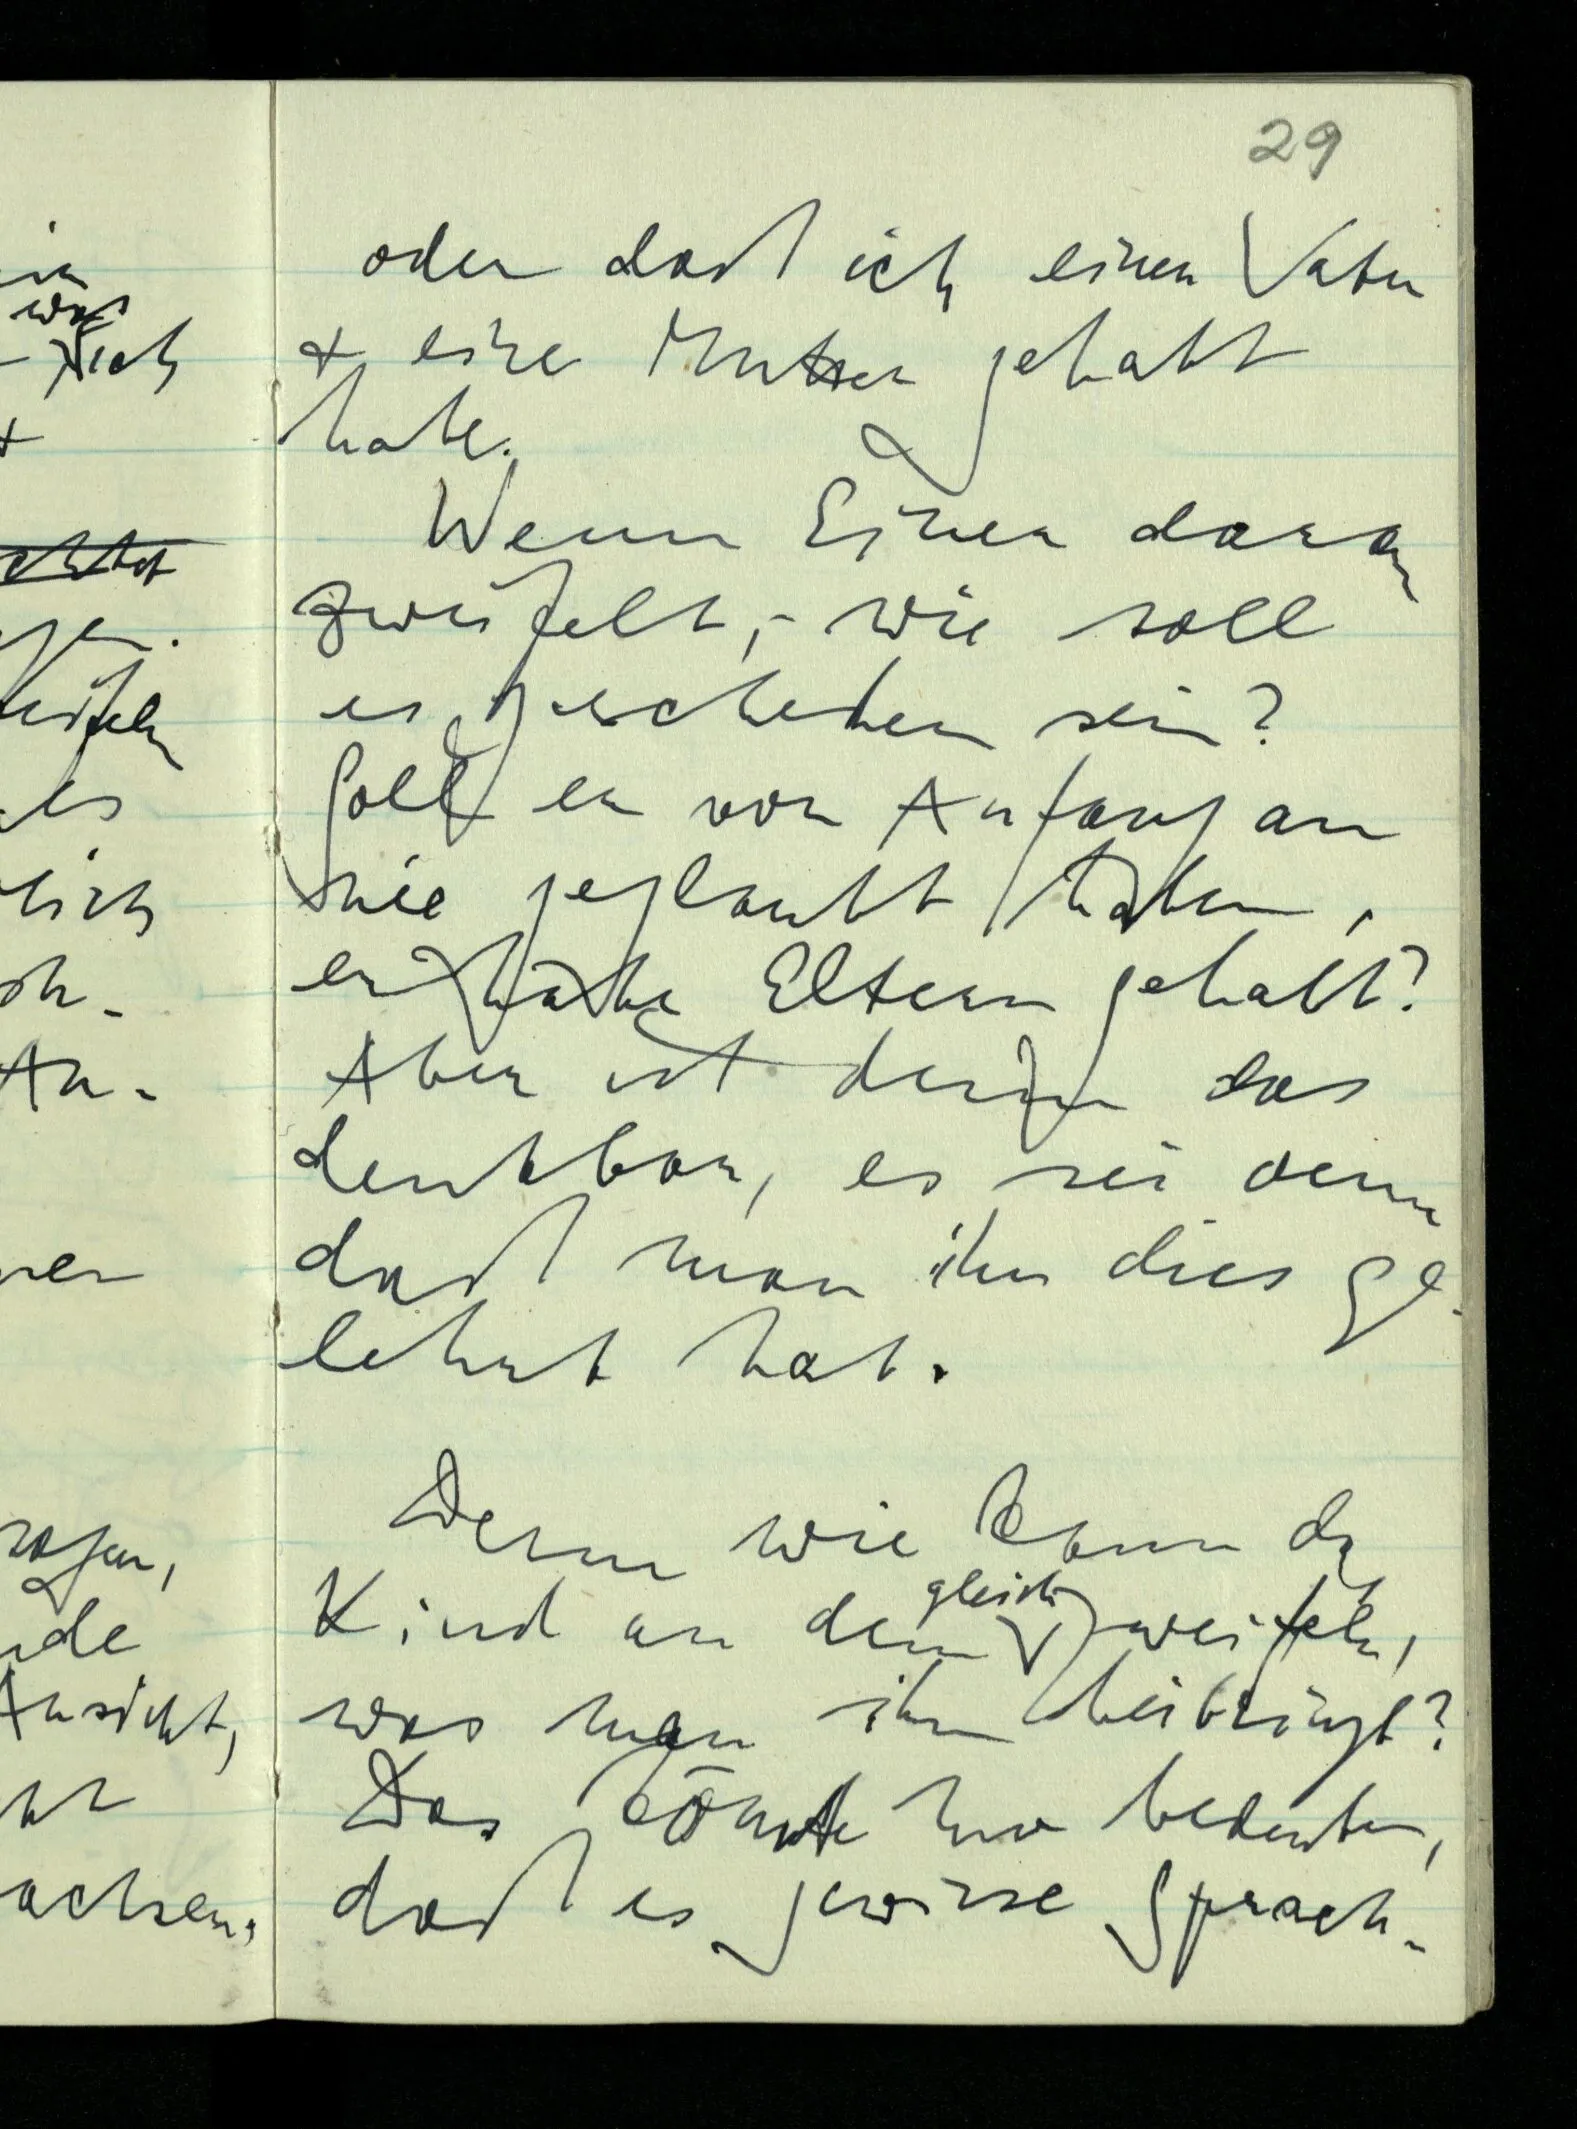 29
oder daß ich einen Vater
+ eine Mutter gehabt
habe.
Wenn Einer daran
zweifelt, – wie soll
es geschehen sein?
Soll er von Anfang an
nie geglaubt haben,
er habe Eltern gehabt?
Aber ist denn das
denkbar, es sei denn
daß man ihn dies ge-
lehrt hat.
Denn wie kann das
gleich
Kind an dem zweifeln,
was man ihm beibringt?
Das könnte nur bedeuten,
daß es gewisse Sprach-
was
sich
+
es
lich
An-
nen
ragen,
Ansicht,
achsen,